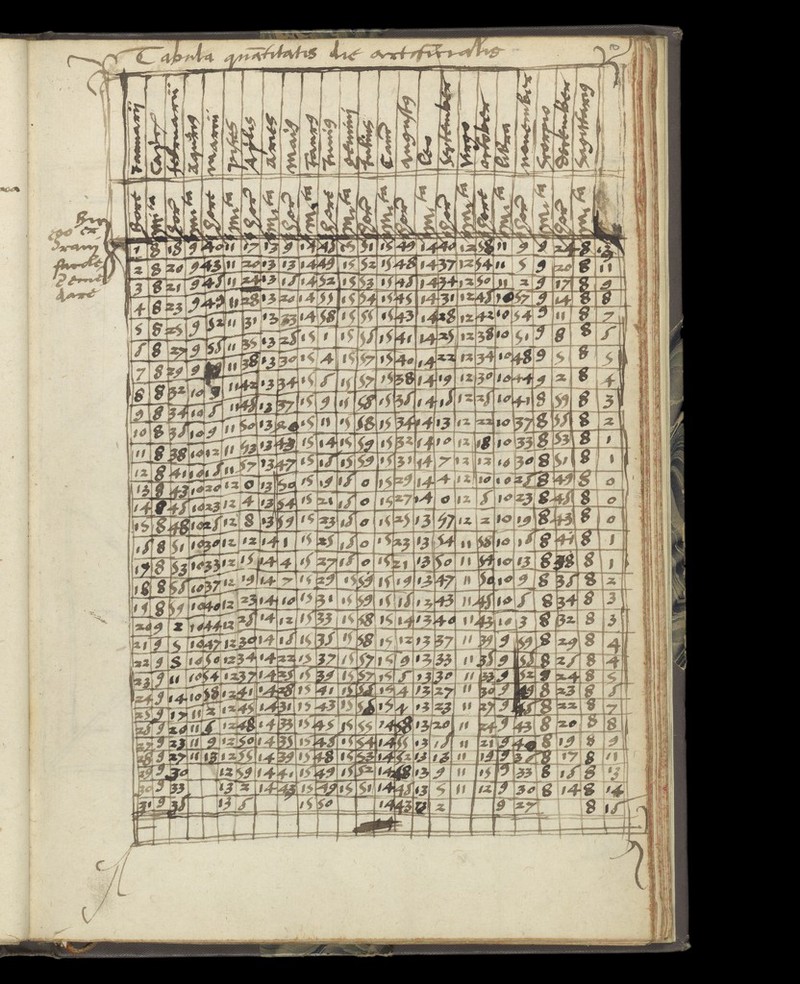 Tabula quantitatis die artificialis
Januarij Capri februarij Aquarij marcij pisces Aplis Aries Maiꝯ Taurꝯ Juniꝯ gemini Julius Cancer augustꝯ Leo september Virgo october libra november Scorpio december Sagittariꝯ
1 8 18 9 40 11 17 13 9 14 46 15 51 15 49 14 40 12 58 11 9 9 24 8
2 8 20 9 43 11 20 13 13 14 49 15 52 15 48 14 37 12 54 11 5 9 20 8 11
3 8 21 9 46 11 24 13 16 14 52 15 53 15 46 14 34 12 50 11 2 9 17 8 9
4 8 23 9 49 11 28 13 20 14 55 15 54 15 45 14 31 12 46 10 57 9 14 8 8
5 8 25 9 52 11 31 13 23 14 58 15 55 15 43 14 28 12 42 10 54 9 11 8 7
6 8 27 9 56 11 35 13 26 15 1 15 56 15 41 14 25 12 38 10 51 9 8 8 6
7 8 29 9 11 38 13 30 15 4 15 57 15 40 14 22 12 34 10 48 9 5 8 5
8 8 32 10 9 11 42 13 34 15 6 15 57 15 38 14 19 12 30 10 44 9 2 8 4
9 8 34 10 6 11 46 13 37 15 9 15 58 15 36 14 16 12 26 10 41 8 59 8 3
10 8 36 10 9 11 50 13 15 11 15 58 15 34 14 13 12 22 10 37 8 56 8 2
11 8 38 10 12 11 53 13 43 15 14 15 59 15 32 14 10 12 18 10 33 8 53 8 1
12 8 41 10 16 11 57 13 47 15 16 15 59 15 31 14 7 12 12 10 30 8 51 8 1
13 8 43 10 20 12 0 13 50 15 19 16 0 15 29 14 4 12 10 10 26 8 49 8 0
14 8 46 10 23 12 4 13 54 15 21 16 0 15 27 14 0 12 6 10 23 8 46 8 0
15 8 48 10 26 12 8 13 59 15 23 16 0 15 25 13 57 12 2 10 19 8 43 8 0
16 8 51 10 30 12 12 14 1 15 25 16 0 15 23 13 54 11 58 10 16 8 41 8 1
17 8 53 10 33 12 15 14 4 15 27 16 0 15 21 13 50 11 54 10 13 8 38 8 1
18 8 56 10 37 12 19 14 7 15 29 15 59 15 19 13 47 11 50 10 9 8 36 8 2
19 8 59 10 40 12 23 14 10 15 31 15 59 15 16 13 43 11 46 10 6 8 34 8 3
20 9 2 10 44 12 26 14 12 15 33 15 58 15 14 13 40 11 43 10 3 8 32 8 3
21 9 5 10 47 12 30 14 16 15 35 15 58 15 12 13 37 11 39 9 59 8 29 8 4
22 9 8 10 50 12 34 14 22 15 37 15 57 15 9 13 33 11 36 9 56 8 26 8 4
23 9 11 10 54 12 37 14 25 15 39 15 57 15 6 13 30 11 33 9 52 9 24 8 5
24 9 14 10 58 12 41 14 28 15 41 15 56 15 4 13 27 11 30 9 49 8 23 8 6
25 9 17 11 2 12 45 14 31 15 43 15 56 15 4 13 23 11 27 9 46 8 22 8 7
26 9 20 11 6 12 48 14 33 15 45 15 55 14 58 13 20 11 24 9 43 8 20 8 8
27 9 23 11 9 12 50 14 35 15 46 15 54 14 55 13 16 11 21 9 40 8 19 8 9
28 9 27 11 13 12 55 14 39 15 48 15 53 14 52 13 13 11 19 9 36 8 17 8 11
29 9 30 12 59 14 41 15 49 15 52 14 48 13 9 11 15 9 33 8 16 8 13
30 9 33 13 2 14 43 15 49 15 51 14 46 13 5 11 12 9 30 8 14 8 14
31 9 36 13 6 15 50 14 43 13 2 9 27 8 16